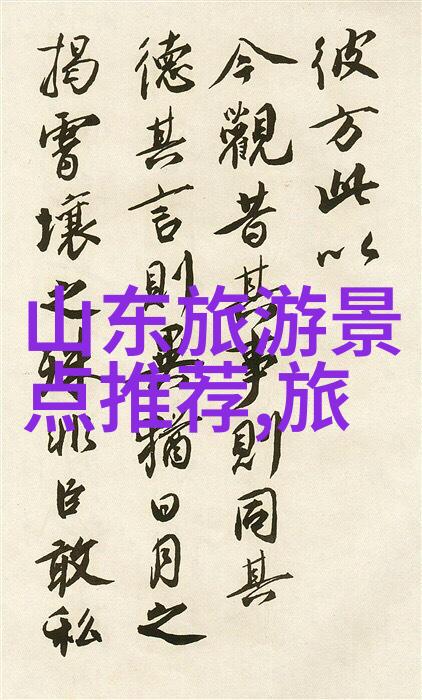 彼方此以
今觀昔其事則同其
德其言則異猶日月之
揭霄壤之殊非臣敢私
山东旅游景
点推荐,旅